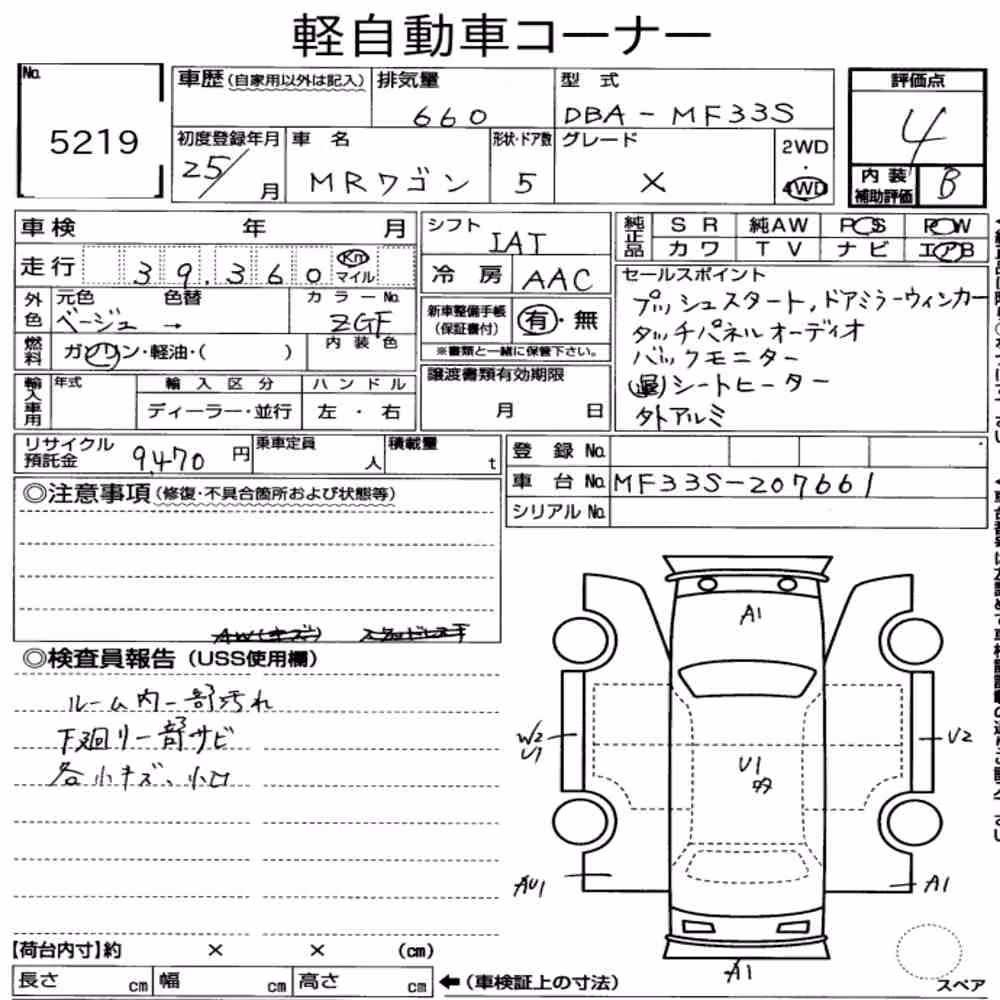 軽自動車コーナー
No. 5219
車歴(自家用以外は記入) 排気量 660
型式 DBA-MF33S
評価点 4
初度登録年月 25/ 月
車名 MRワゴン
形状・ドア数 5
グレード X
2WD・4WD
内装補助評価 B
車検 年 月
シフト IAT
純正品 SR 純AW PS PW
カワ TV ナビ エアB
走行 39,360 Km マイル
冷房 AAC
セールスポイント
プッシュスタート,ドアミラーウィンカー
タッチパネルオーディオ
バックモニター
シートヒーター
外アルミ
外色 元色 色替 カラーNo.
ベージュ → ZGF
新車整備手帳(保証書付) 有・無
※書類と一緒に保管下さい。
燃料 ガソリン・軽油・( ) 内装色
輸入車用 年式 輸入区分 ハンドル
ディーラー・並行 左・右
譲渡書類有効期限
月 日
リサイクル預託金 9,470円 乗車定員 人 積載量 t
登録No.
車台No. MF33S-207661
シリアルNo.
◎注意事項(修復・不具合箇所および状態等)
AW(キズ) スタッドレス4
◎検査員報告(USS使用欄)
ルーム内一部汚れ
下廻り一部サビ
各小キズ、小凹
A1
W2
U1
U2
U1
多
AU1
A1
A1
【荷台内寸】約 × × (cm)
長さ cm 幅 cm 高さ cm ←(車検証上の寸法)
スペア